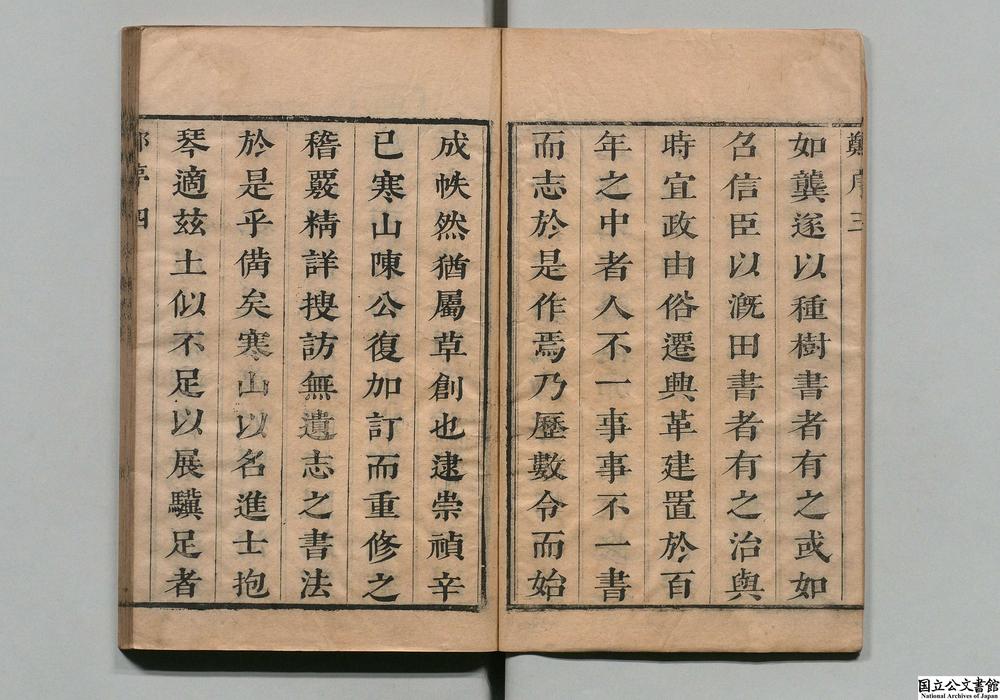 如龔遂以種樹書者有之或如
召信臣以漑田書者有之治與
時宜政由俗遷興革建置於百
年之中者人不一事事不一書
而志於是作焉乃歷數令而始
成帙然猶屬草創也逮崇禎辛
已寒山陳公復加訂而重修之
稽覈精詳搜訪無遺志之書法
於是乎備矣寒山以名進士抱
琴適玆土似不足以展驥足者
四
国立公文書館
National Archives of Japan